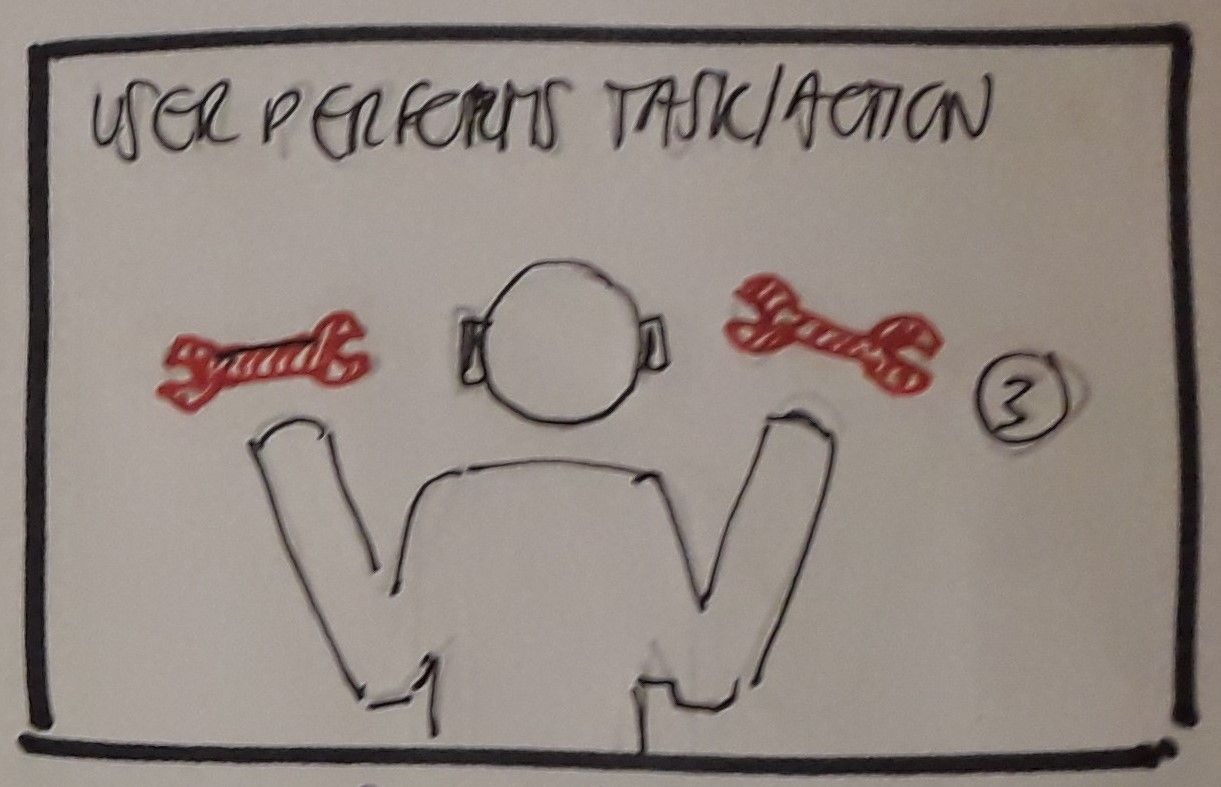 USER PERFORMS TASK/ACTION
3